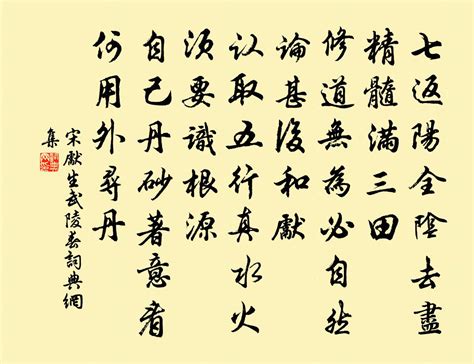 七返陽全陰去盡
精髓滿三田
修道無為必自然
論甚後和獻
认取五行真水火
须要識根源
自己丹砂著意看
何用外尋丹
宋獻生武陵春詞典網
集